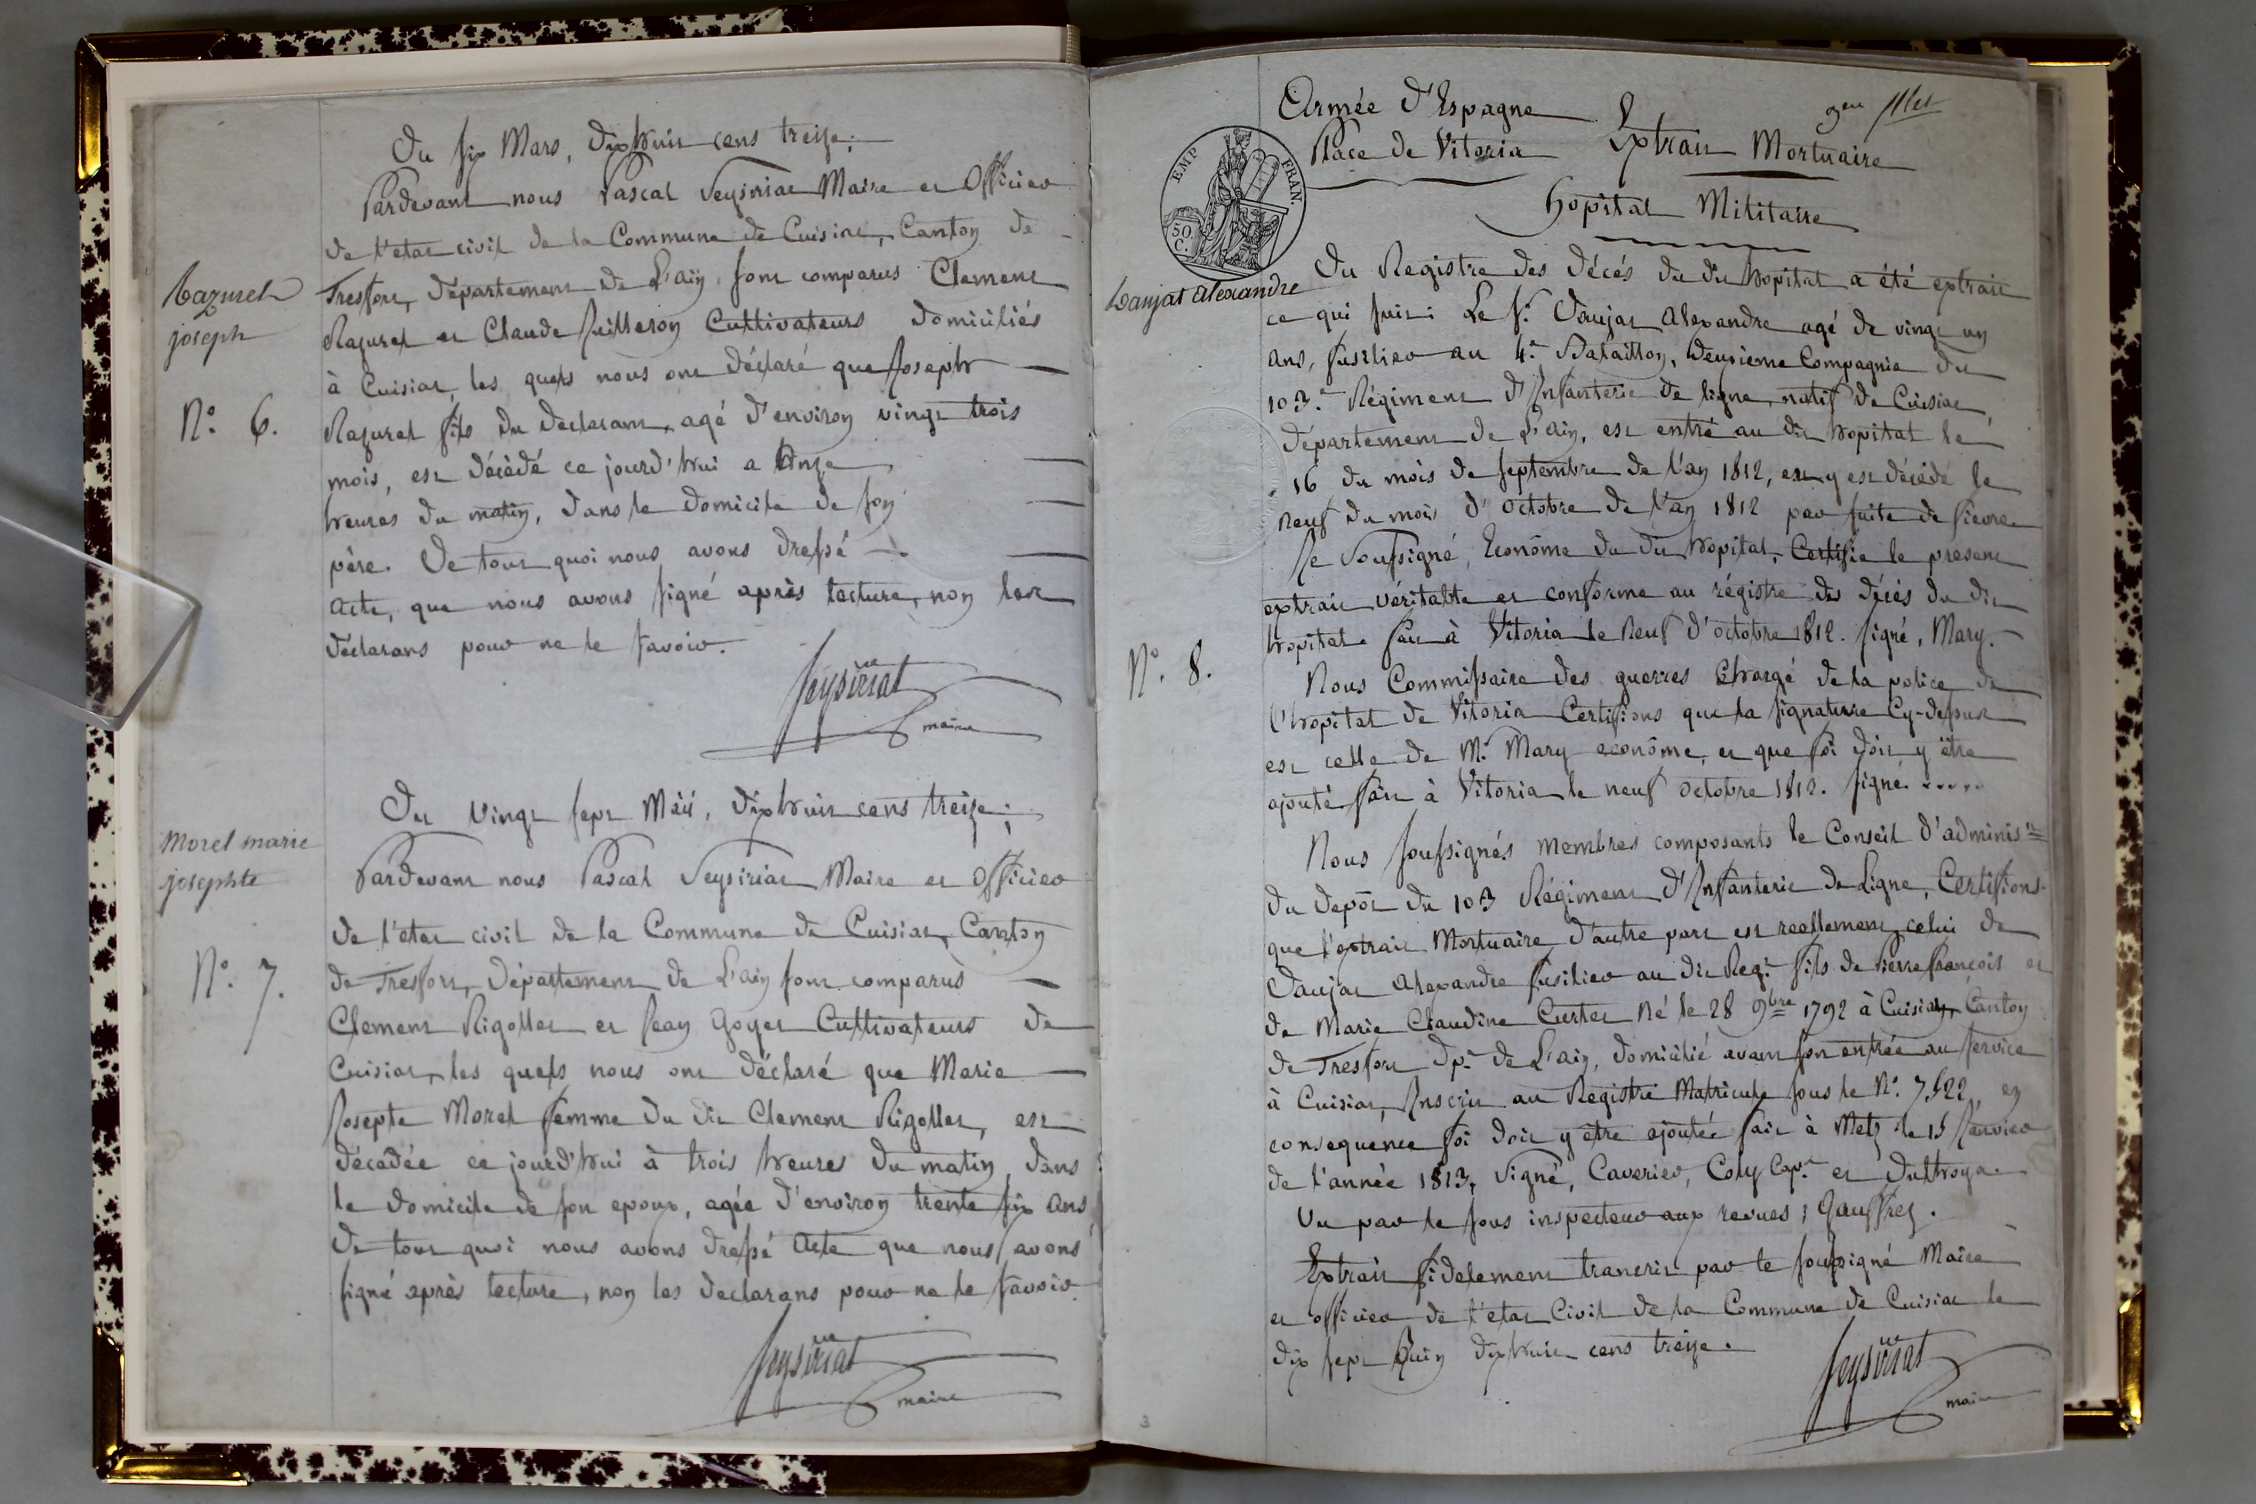 Du six Mars, dix huit cens treize;
Pardevant nous Pascal Seysiriat Maire et Officier
de l'etat civil de la Commune de Cuisiat, Canton de
Treffort, département de L'ain, sont comparus Clement
Razurel et Claude Juilleron Cultivateurs domiciliés
à Cuisiat, les quels nous ont déclaré que Joseph
Razurel fils du déclarant, agé d'environ vingt trois
mois, est décédé ce jourd'hui a Onze
heures du matin, dans le domicile de son
père. De tout quoi nous avons dressé
acte, que nous avons signé après lecture, non les
déclarans pour ne le savoir.
Seysiriat
maire
Razurel
joseph
N.o 6.
Du vingt sept Maii, dix huit cens treize;
Pardevant nous Pascal Seysiriat Maire et officier
de l'etat civil de la Commune de Cuisiat, Canton
de Treffort, Département de L'ain sont comparus
Clement Rigollet et Jean Goyet Cultivateurs de
Cuisiat, les quels nous ont déclaré que Marie
Josepte Morel femme du dit Clement Rigollet, est
décédée ce jourd'hui à trois heures du matin, dans
le domicile de son epoux, agée d'environ trente six ans
de tout quoi nous avons dressé acte que nous avons
signé après lecture, non les declarans pour ne le savoir.
Seysiriat
maire
morel marie
josephte
N.o 7.
Armée d'Espagne
Place de Vitoria
Extrait Mortuaire
Hopital Militaire
EMP. FRAN.
50
C.
Daujat alexandre
Du Registre des décés du dit hopital a été extrait
ce qui suit: Le S.r Daujat Alexandre agé de vingt un
ans, fusilier au 4.e Bataillon, deuxieme Compagnie du
103.e Régiment d'Infanterie de ligne, natif de Cuisiat,
département de L'ain, est entré au dit hopital le
16 du mois de septembre de l'an 1812, et y est décédé le
neuf du mois d'octobre de l'an 1812 par suite de fievre
Je Soussigné, Econôme du dit hopital, Certifie le present
extrait véritable et conforme au régistre des décés du dit
hopital fait à Vitoria le neuf d'octobre 1812. signé, Mary.
N.o 8.
Nous Commissaire des guerres Chargé de la police de
l'hopital de Vitoria Certifions que la signature Cy-dessus
est celle de M.r Mary econôme, et que foi doit y être
ajouté fait à Vitoria le neuf octobre 1812. signé.....
Nous soussignés membres composants le Conseil d'adminis.on
du depôt du 103 Régiment d'Infanterie de Ligne, Certifions
que l'extrait Mortuaire d'autre part est reellement celui de
Daujat Alexandre fusilier au dit Reg.t fils de Pierre françois et
de Marie Claudine Curtet né le 28 9bre 1792 à Cuisiat, Canton
de Treffort dp.t de L'ain, domicilié avant son entrée au service
à Cuisiat, Inscrit au Registre Matricule sous le N.o 7522, en
consequence foi doit y être ajoutée fait à Metz le 15 Janvier
de l'année 1813, signé, Caverier, Coly Cap.e et Duttroya.
Vu par le sous inspecteur aux revues; Gauffrez.
Extrait fidelement trancrit par le soussigné Maire
et officier de l'etat Civil de la Commune de Cuisiat le
dix sept Juin dix huit cens treize.
Seysiriat
maire
3